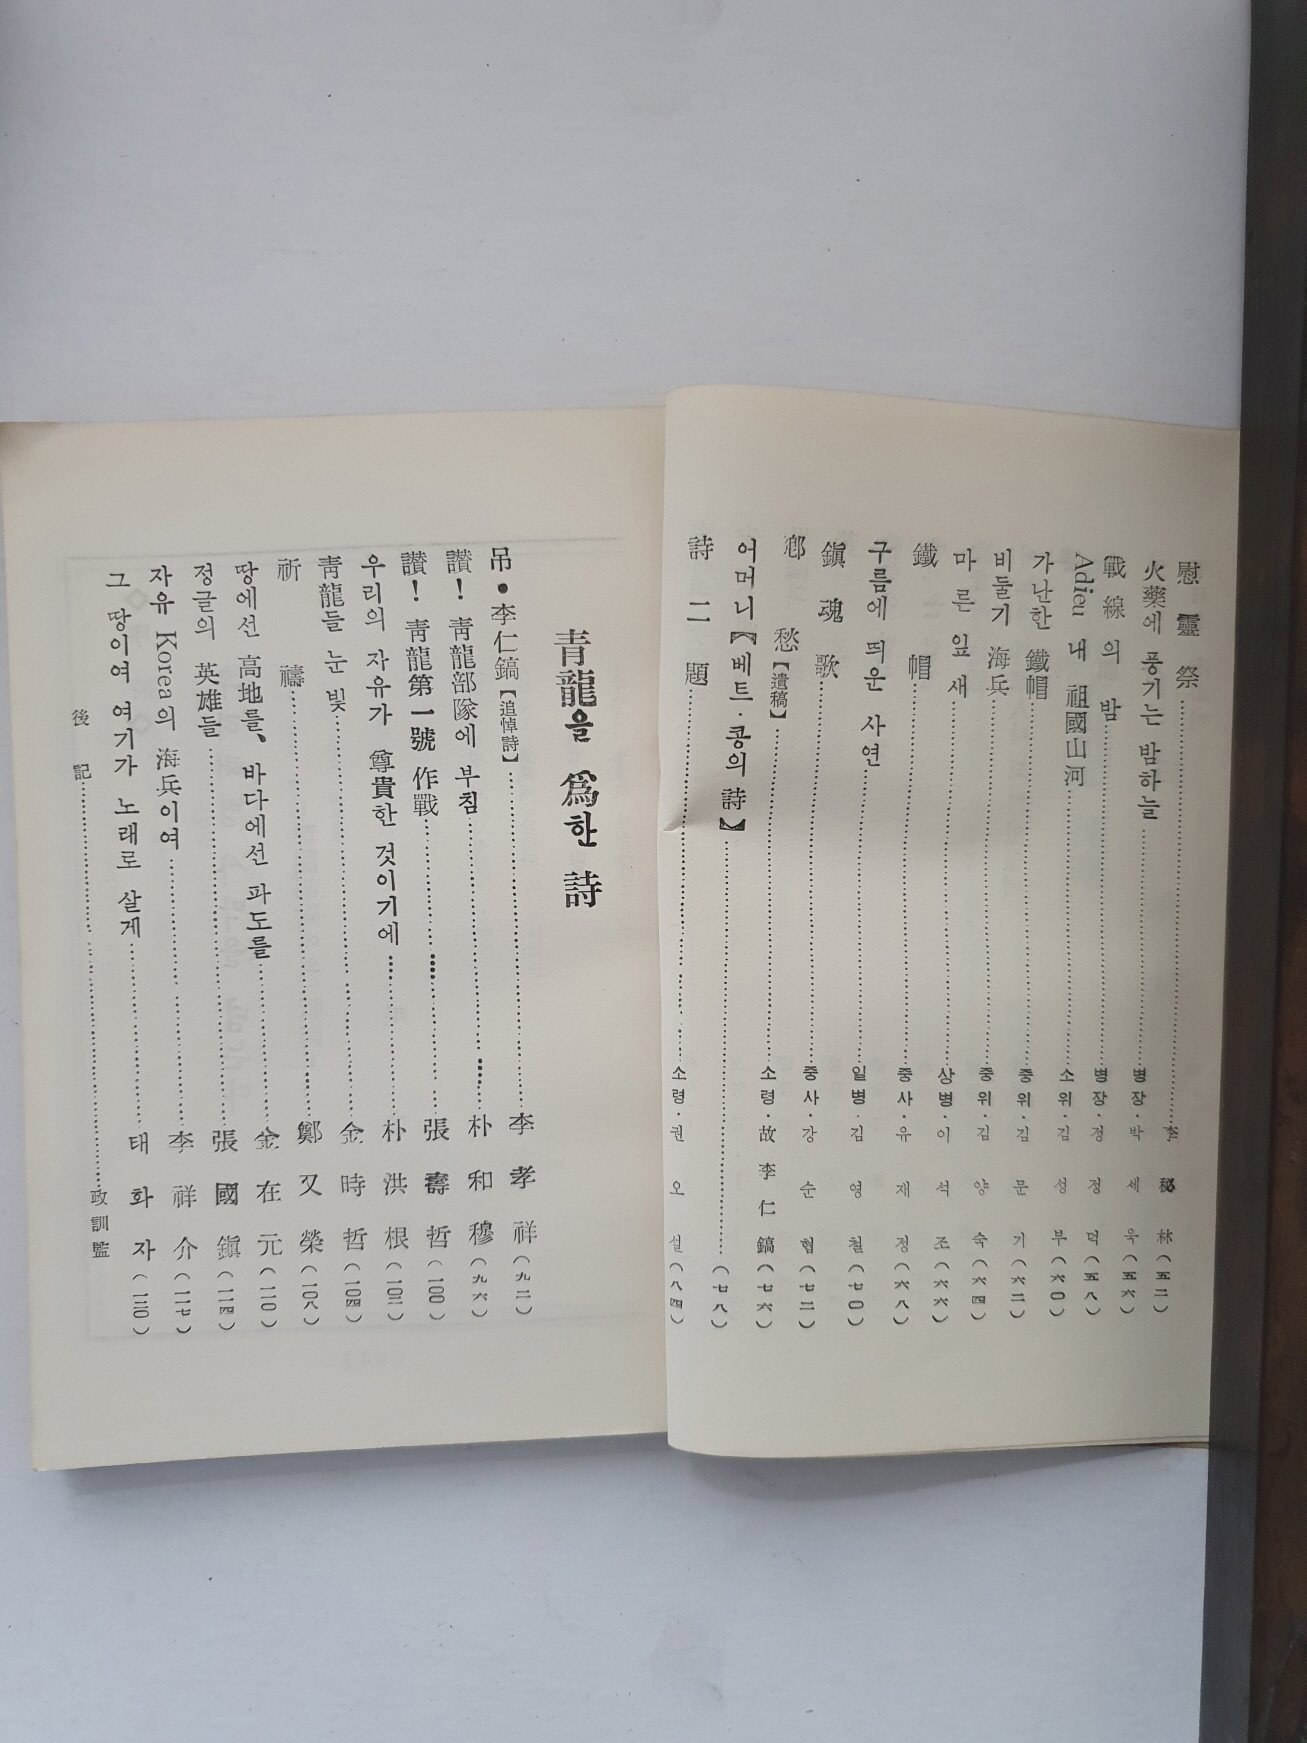 慰靈祭……李秘林(五二)
火藥에 풍기는 밤하늘……병장·박세욱(五六)
戰線의 밤……병장·정정덕(五八)
Adieu 내 祖國山河……소위·김성부(六〇)
가난한 鐵帽……중위·김문기(六二)
비둘기 海兵……중위·김양숙(六四)
마른 잎새……상병·이석조(六六)
鐵帽……중사·유재정(六八)
구름에 띄운 사연……일병·김영철(七〇)
鎭魂歌……중사·강순협(七二)
鄕愁【遺稿】……소령·故 李仁鎬(七六)
어머니【베트·콩의 詩】……(七八)
詩二題……소령·권오설(八四)
靑龍을 爲한 詩
吊·李仁鎬【追悼詩】……李孝祥(九二)
讃! 靑龍部隊에 부침……朴和穆(九六)
讃! 靑龍第一號 作戰……張壽哲(一〇〇)
우리의 자유가 尊貴한 것이기에……朴洪根(一〇二)
靑龍들 눈빛……金時哲(一〇四)
祈禱……鄭又榮(一〇八)
땅에선 高地를, 바다에선 파도를……金在元(一一〇)
정글의 英雄들……張國鎭(一一四)
자유 Korea의 海兵이여……李祥介(一一七)
그 땅이여 여기가 노래로 살게……태화자(一二〇)
後記……政訓監